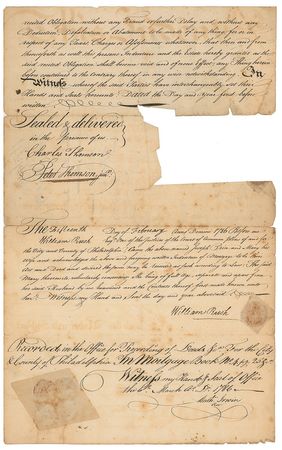 said Obligation without any Fraud or further Delay and without any
Deduction Defalcation or Abatement to be made of any thing for or in
respect of any Taxes Charges or Assessments whatsoever that then and from
thenceforth as well this present Indenture and the Estate hereby granted as the
said recited Obligation shall become void and of none Effect any Thing herein
before contained to the Contrary thereof in any wise notwithstanding In
Witness whereof the said Parties have interchangeably set their
Hands and Seals hereunto Dated the Day and Year first before
written
Sealed & delivered
in the Presence of us
Charles Thomson
Peter Thomson junr.
The fifteenth Day of February Anno Domini 1786 Before me
William Rush Esqr. One of the Justices of the Court of Common pleas &c. for
the City and County of Philadelphia Came the above named Joseph and Mary his
Wife and acknowledged the above Indenture of Mortgage to be their
Act and Deed and desired the same may be recorded as such according to Law The said
Mary thereunto voluntarily consenting She being of full Age separate and apart from
her said Husband by me examined and the Contents thereof first made known unto
her Witness my Hand and Seal the day and year abovesaid
William Rush
Recorded in the Office for Recording of Deeds &c. for the City
& County of Philadelphia In Mortgage Book
Witness my Hand & Seal of Office
the March 1786
Math. Irwin